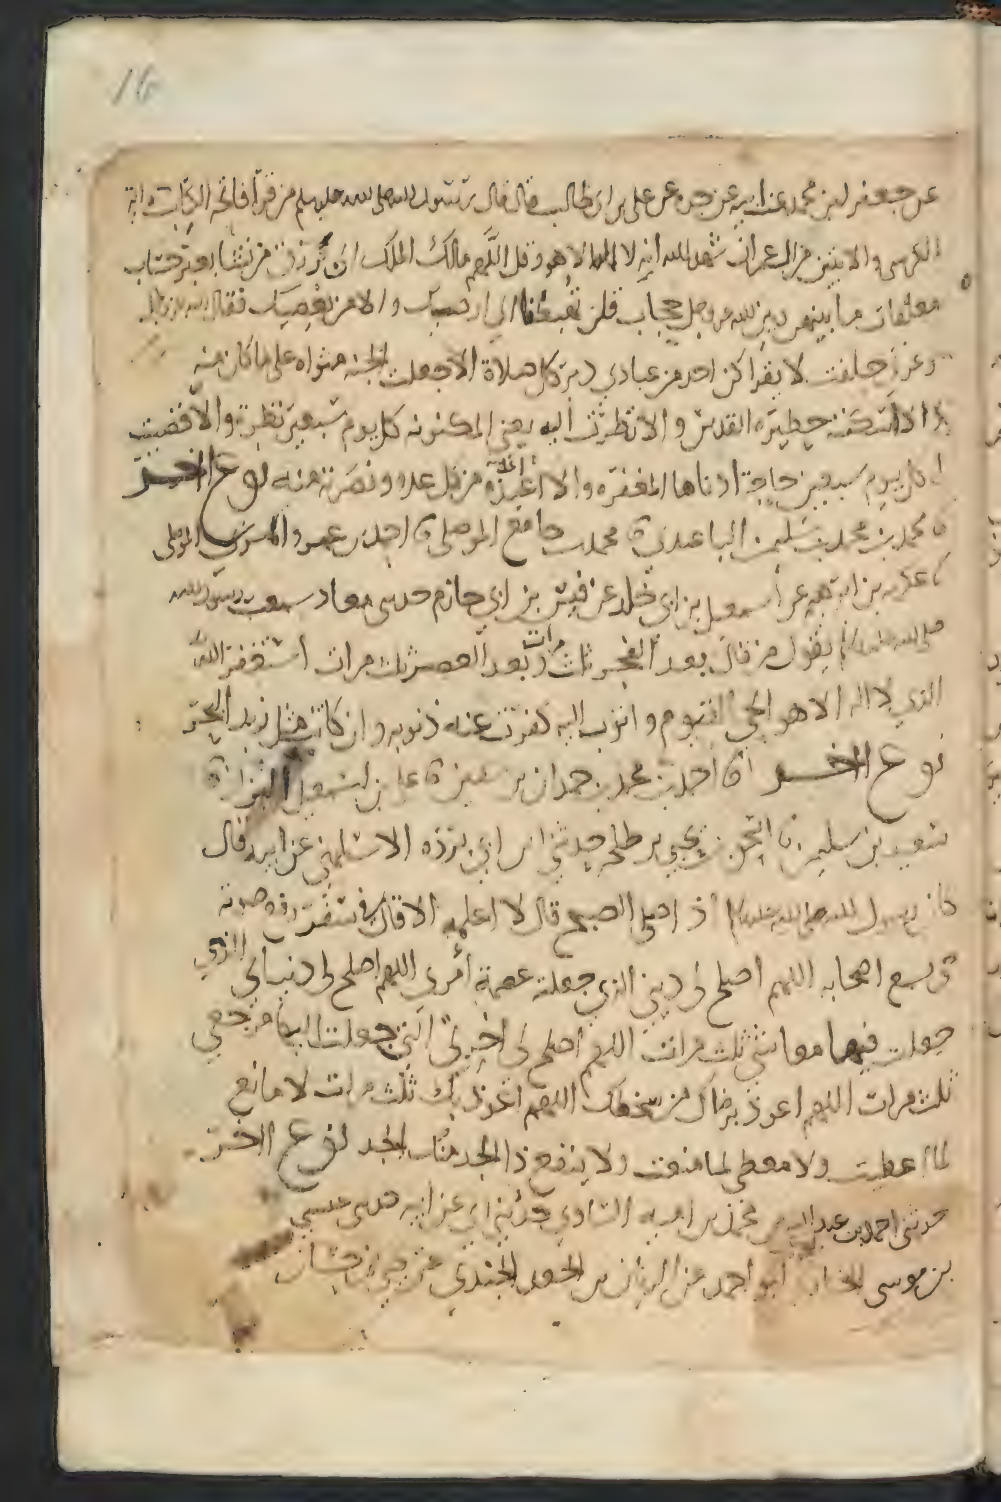 16
عن جعفر بن محمد عن ابيه عن جده عن علي بن ابي طالب قال قال رسول الله صلى الله عليه وسلم من قرا فاتحة الكتاب واية
الكرسي والايتين من ال عمران شهد الله انه لا اله الا هو وقل اللهم مالك الملك الى ترزق من تشا بغير حساب
معلقات ما بينهن وبين الله عز وجل حجاب قلن تهبطنا الى ارضك والى من يعصيك فقال
وعزتي حلفت لا يقراكن احد من عبادي دبر كل صلاة الا جعلت الجنة مثواه على ما كان منه
الا اسكنته حظيرة القدس والا نظرت اليه بعيني المكنونة كل يوم سبعين نظرة والا قضيت
له كل يوم سبعين حاجة ادناها المغفرة والا اعيذه من كل عدو ونصرته منه نوع اخر
محمد بن محمد بن سليمن الباغندي محمد بن جامع الموصلي احمد بن عمرو المزني الموصلي
عكرمة بن ابراهيم عن اسمعيل بن ابي خلد عن قيس بن ابي حازم حدثني معاذ سمعت رسول الله
صلى الله عليه وسلم يقول من قال بعد الفجر ثلث مرات وبعد العصر ثلث مرات استغفر الله
الذي لا اله الا هو الحي القيوم واتوب اليه كفرت عنه ذنوبه وان كانت مثل زبد البحر
نوع اخر احمد بن محمد بن حمدان بن سفين علي بن اسمعيل البزاز
سعيد بن سليمن اسحق بن يحيى بن طلحة حدثني ابن ابي برزة الاسلمي عن ابيه قال
كان رسول الله صلى الله عليه وسلم اذا صلى الصبح قال لا اعلمه الا قال في سفر رفع صوته
حتى يسمع اصحابه اللهم اصلح لي ديني الذي جعلته عصمة امري اللهم اصلح لي دنياي الذي
جعلت فيها معاشي ثلث مرات اللهم اصلح لي اخرتي التي جعلت اليها مرجعي
ثلث مرات اللهم اعوذ برضاك من سخطك اللهم اعوذ بك ثلث مرات لا مانع
لما اعطيت ولا معطي لما منعت ولا ينفع ذا الجد منك الجد نوع اخر
حدثني احمد بن عبد الله بن محمد بن امية الساوي حدثني ابي عن ابيه حدثني عيسى
بن موسى ابو احمد عن الريان بن الجعد الجندي عن يحيى بن حسان